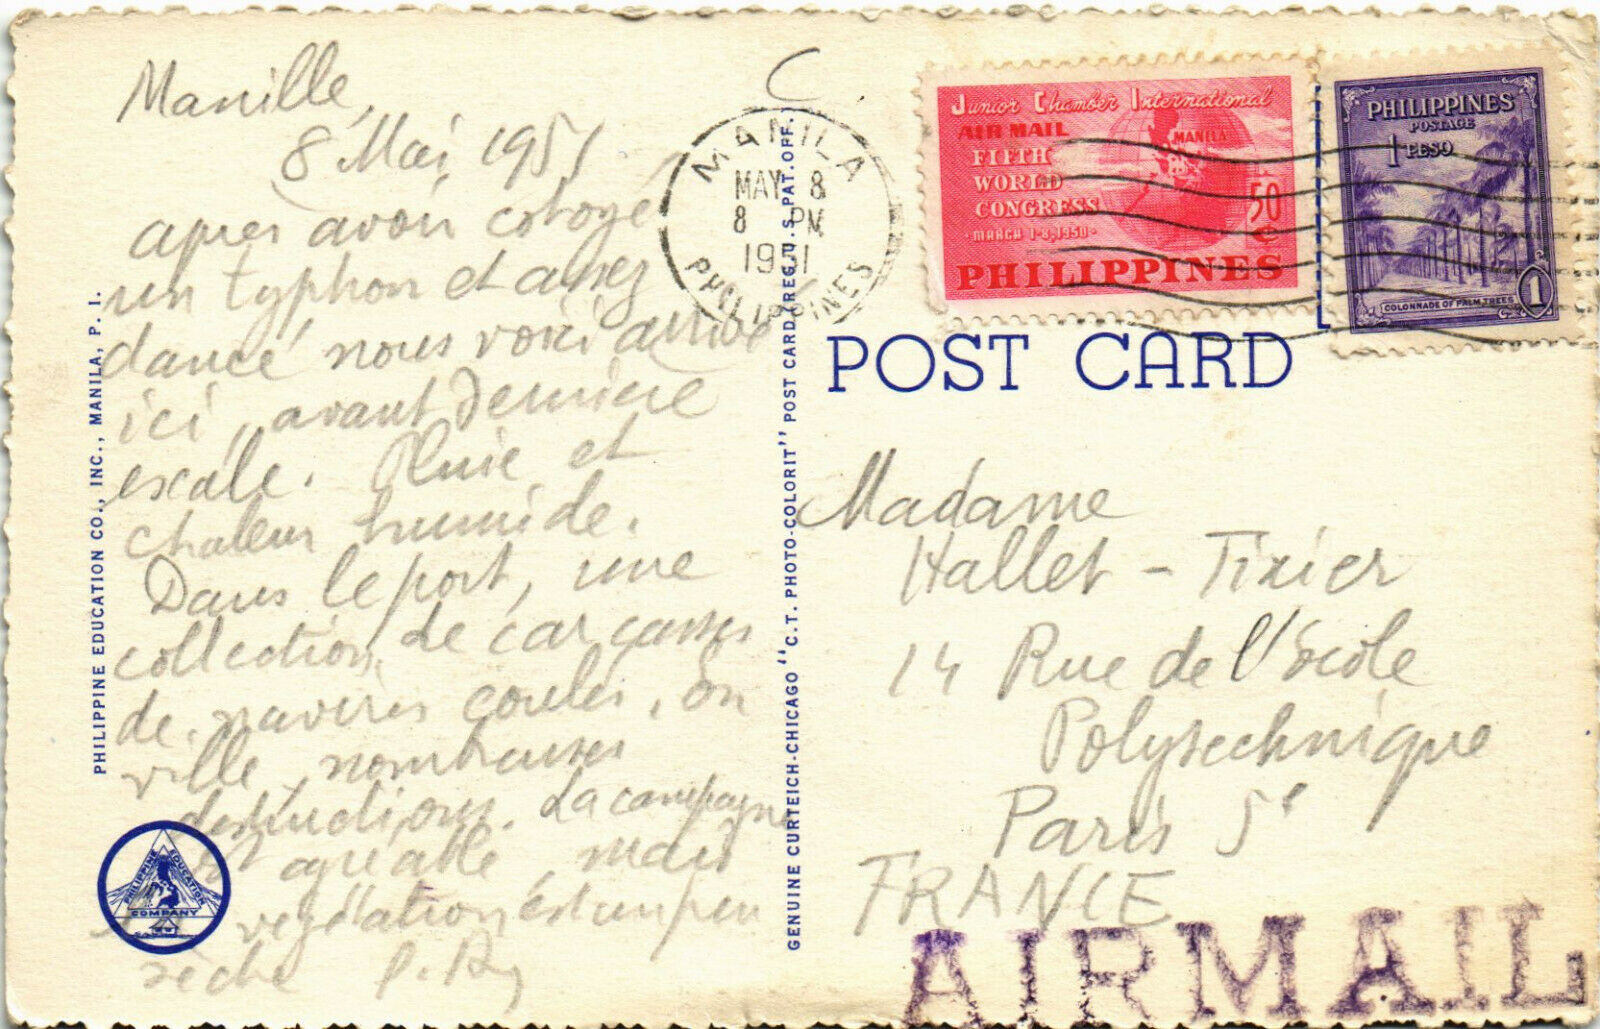 Manille,
8 Mai 1951
après avoir cotoyé
un typhon et assez
dansé nous voici arrivé
ici, avant dernière
escale. Pluie et
chaleur humide.
Dans le port, une
collection de carcasses
de navires coulés, en
ville, nombreuses
destructions. La campagne
est agréable mais
la végétation est un peu
sèche
PHILIPPINE EDUCATION CO., INC., MANILA, P. I.
PHILIPPINE EDUCATION
COMPANY
GENUINE CURTEICH-CHICAGO "C.T. PHOTO-COLORIT" POST CARD (REG. U.S. PAT. OFF.
MANILA
MAY 8
8 PM
1951
PHILIPPINES
Junior Chamber International
AIR MAIL
FIFTH
WORLD
CONGRESS
·MARCH 1-8, 1950·
MANILA
50
c
PHILIPPINES
PHILIPPINES
POSTAGE
1 PESO
COLONNADE OF PALM TREES
1
POST CARD
Madame
Hallet - Tixier
14 Rue de l'Ecole
Polytechnique
Paris 5e
FRANCE
AIR MAIL